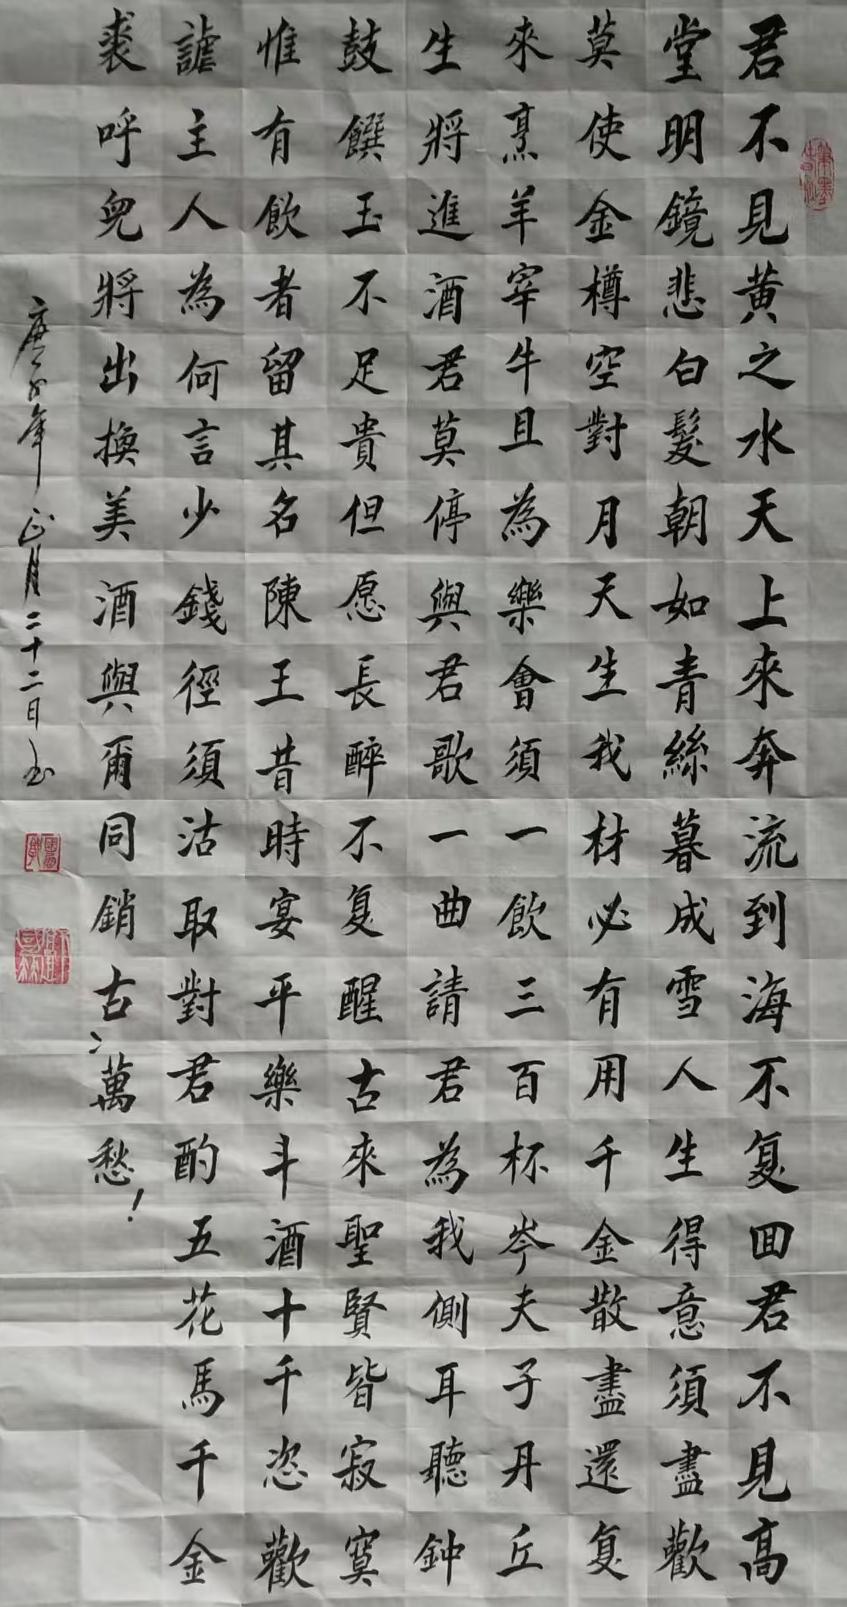 君不見黄之水天上來奔流到海不复回君不見高
堂明鏡悲白髮朝如青絲暮成雪人生得意須盡歡
莫使金樽空對月天生我材必有用千金散盡還复
來烹羊宰牛且為樂會須一飲三百杯岑夫子丹丘
生將進酒君莫停與君歌一曲請君為我側耳聽鈡
鼓饌玉不足貴但愿長醉不复醒古來聖賢皆寂寞
惟有飲者留其名陳王昔時宴平樂斗酒十千恣歡
謔主人為何言少錢徑須沽取對君酌五花馬千金
裘呼兒將出換美酒與爾同銷古萬愁！
庚子年正月二十二日書